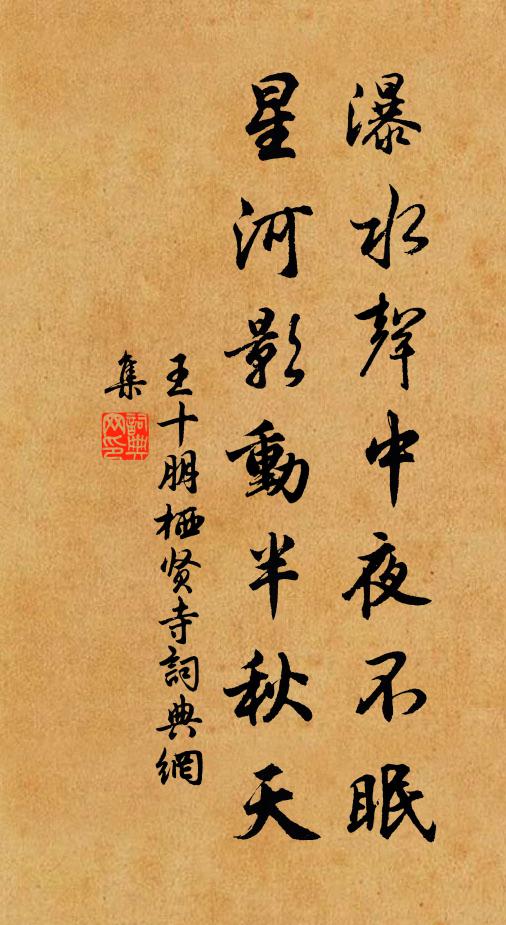 瀑水聲中夜不眠
星河影動半秋天
王十朋栖贤寺詞典網
集
詞典网印